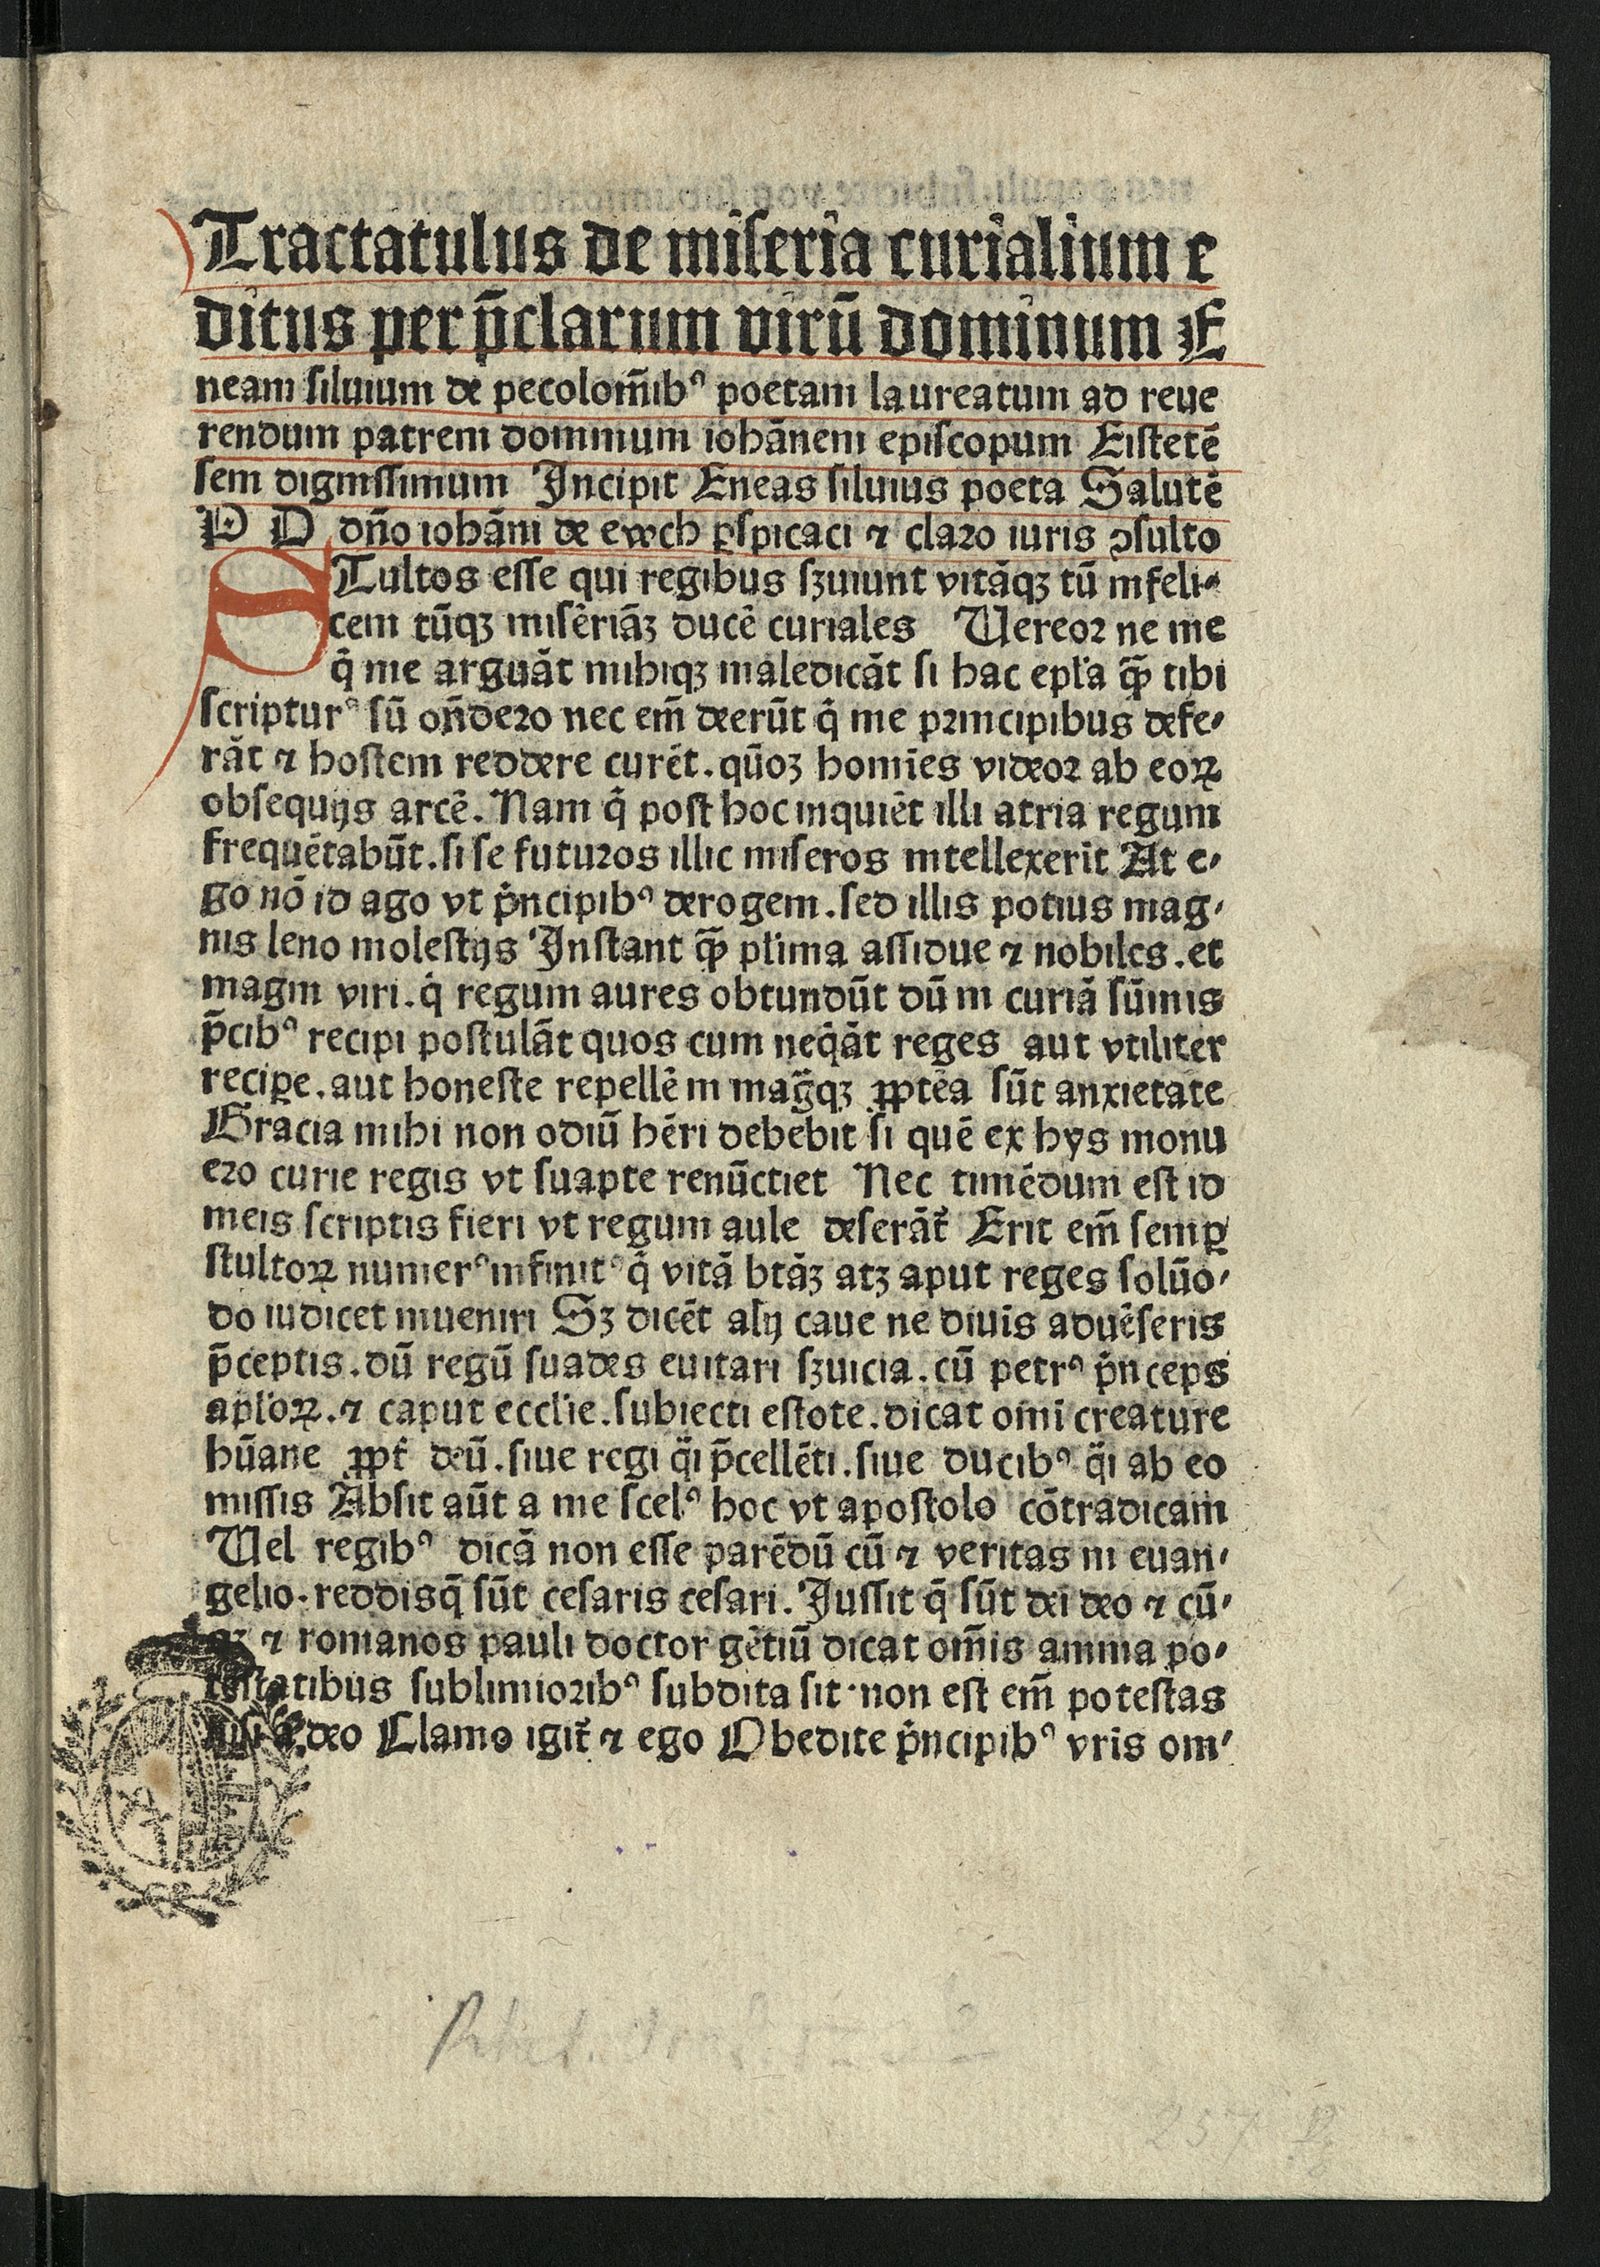 Tractatulus de miseria curialium e
ditus per p̄clarum virū dominum E
neam siluium de pecolom̄ibꝰ poetam laureatum ad reue
rendum patrem dominum iohānem episcopum Eistetē
sem dignissimum Incipit Eneas siluius poeta Salutē
P D dn̄o iohāni de eych ꝑspicaci ⁊ claro iuris ꝯsulto
STultos esse qui regibus sꝫuiunt vitāqꝫ tū infeli⸗
cem tūqꝫ misēriāꝫ ducē curiales Uereor ne me
q̇ me arguāt mihiqꝫ maledicāt si hac epl̄a qꝫ̄ tibi
scripturꝰ sū on̄dero nec em̄ deerūt q̇ me principibus defe⸗
rāt ⁊ hostem reddere curēt. qūoꝫ homīes videor ab eoꝝ
obsequijs arcē. Nam q̇ post hoc inquiēt illi atria regum
frequētabūt. si se futuros illic miseros intellexerit At e⸗
go nō id ago vt p̓ncipibꝰ derogem. sed illis potius mag⸗
nis leno molestijs Instant qꝫ̄ pl̓ima assidue ⁊ nobiles. et
magni viri. q̇ regum aures obtundūt dū in curiā sūmis
p̄cibꝰ recipi postulāt quos cum neq̇āt reges aut vtiliter
reciꝑe. aut honeste repellē in mag̈qꝫ ꝓptēa sūt anxietate
Gracia mihi non odiū hēri debebit si quē ex hys monu
ero curie regis vt suapte renūctiet Nec timēdum est id
meis scriptis fieri vt regum aule deserāt᷑ Erit em̄ semꝑ
stultoꝝ numerꝰ infinitꝰ q̇ vitā btāꝫ atꝫ aput reges solūo⸗
do iudicet inueniri Sꝫ dicēt alij caue ne diuis aduēseris
p̄ceptis. dū regū suades euitari sꝫuicia. cū petrꝰ p̓nceps
apl̓oꝝ. ⁊ caput eccl̓ie. subiecti estote. dicat om̄i creature
hūane ꝓpt᷑ deū. siue regi q̈i p̄cellēti. siue ducibꝰ q̈i ab eo
missis Absit aūt a me scelꝰ hoc vt apostolo cōtradicam
Uel regibꝰ dicā non esse parēdū cū ⁊ veritas in euan⸗
gelio. reddisq̄ sūt cesaris cesari. Jussit q̄ sūt dei deo ⁊ cū⸗
qꝫ ⁊ romanos pauli doctor gētiū dicat om̄is anima po⸗
testatibus sublimioribꝰ subdita sit. non est em̄ potestas
nisi a deo Clamo igit᷑ ⁊ ego Obedite p̓ncipibꝰ vris om⸗